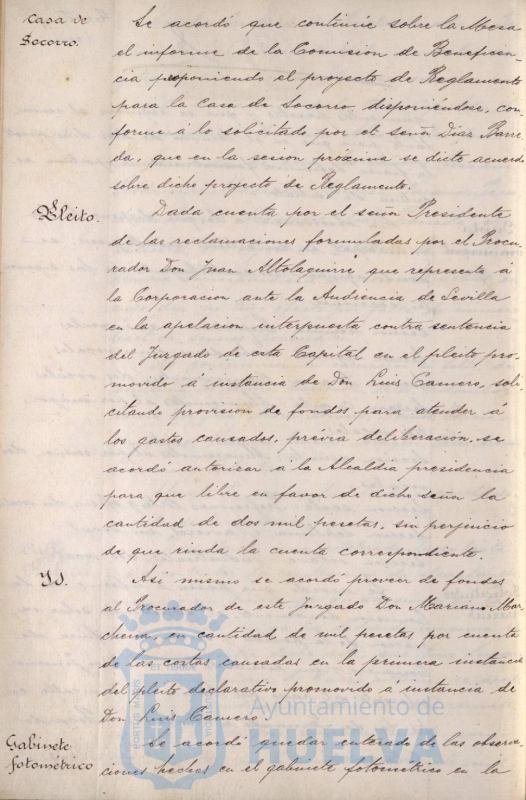 Casa de
Socorro.
Se acordó que continúe sobre la Mesa
el informe de la Comision de Beneficen-
cia proponiendo el proyecto de Reglamento
para la Casa de Socorro, disponiéndose, con-
forme á lo solicitado por el señor Diaz Barre-
da, que en la sesion próxima se dicte acuerdo
sobre dicho proyecto de Reglamento.
Pleito.
Dada cuenta por el señor Presidente
de las reclamaciones formuladas por el Procu-
rador Don Juan Altolaguirre que representa á
la Corporacion ante la Audiencia de Sevilla
en la apelacion interpuesta contra sentencia
del Juzgado de esta Capital en el pleito pro-
movido á instancia de Don Luis Camero, soli-
citando provision de fondos para atender á
los gastos causados, prévia deliberación, se
acordó autorizar á la Alcaldia presidencia
para que libre en favor de dicho señor la
cantidad de dos mil pesetas, sin perjuicio
de que rinda la cuenta correspondiente.
Id.
Asi mismo se acordó proveer de fondos
al Procurador de este Juzgado Don Mariano Mar-
chena en cantidad de mil pesetas por cuenta
de las costas causadas en la primera instancia
del pleito declarativo promovido á instancia de
Don Luis Camero.
Gabinete
fotométrico
Se acordó quedar enterado de las observa-
ciones hechas en el gabinete fotométrico en la
PORTUS MARIS
ET TERRÆ
Ayuntamiento de
HUELVA